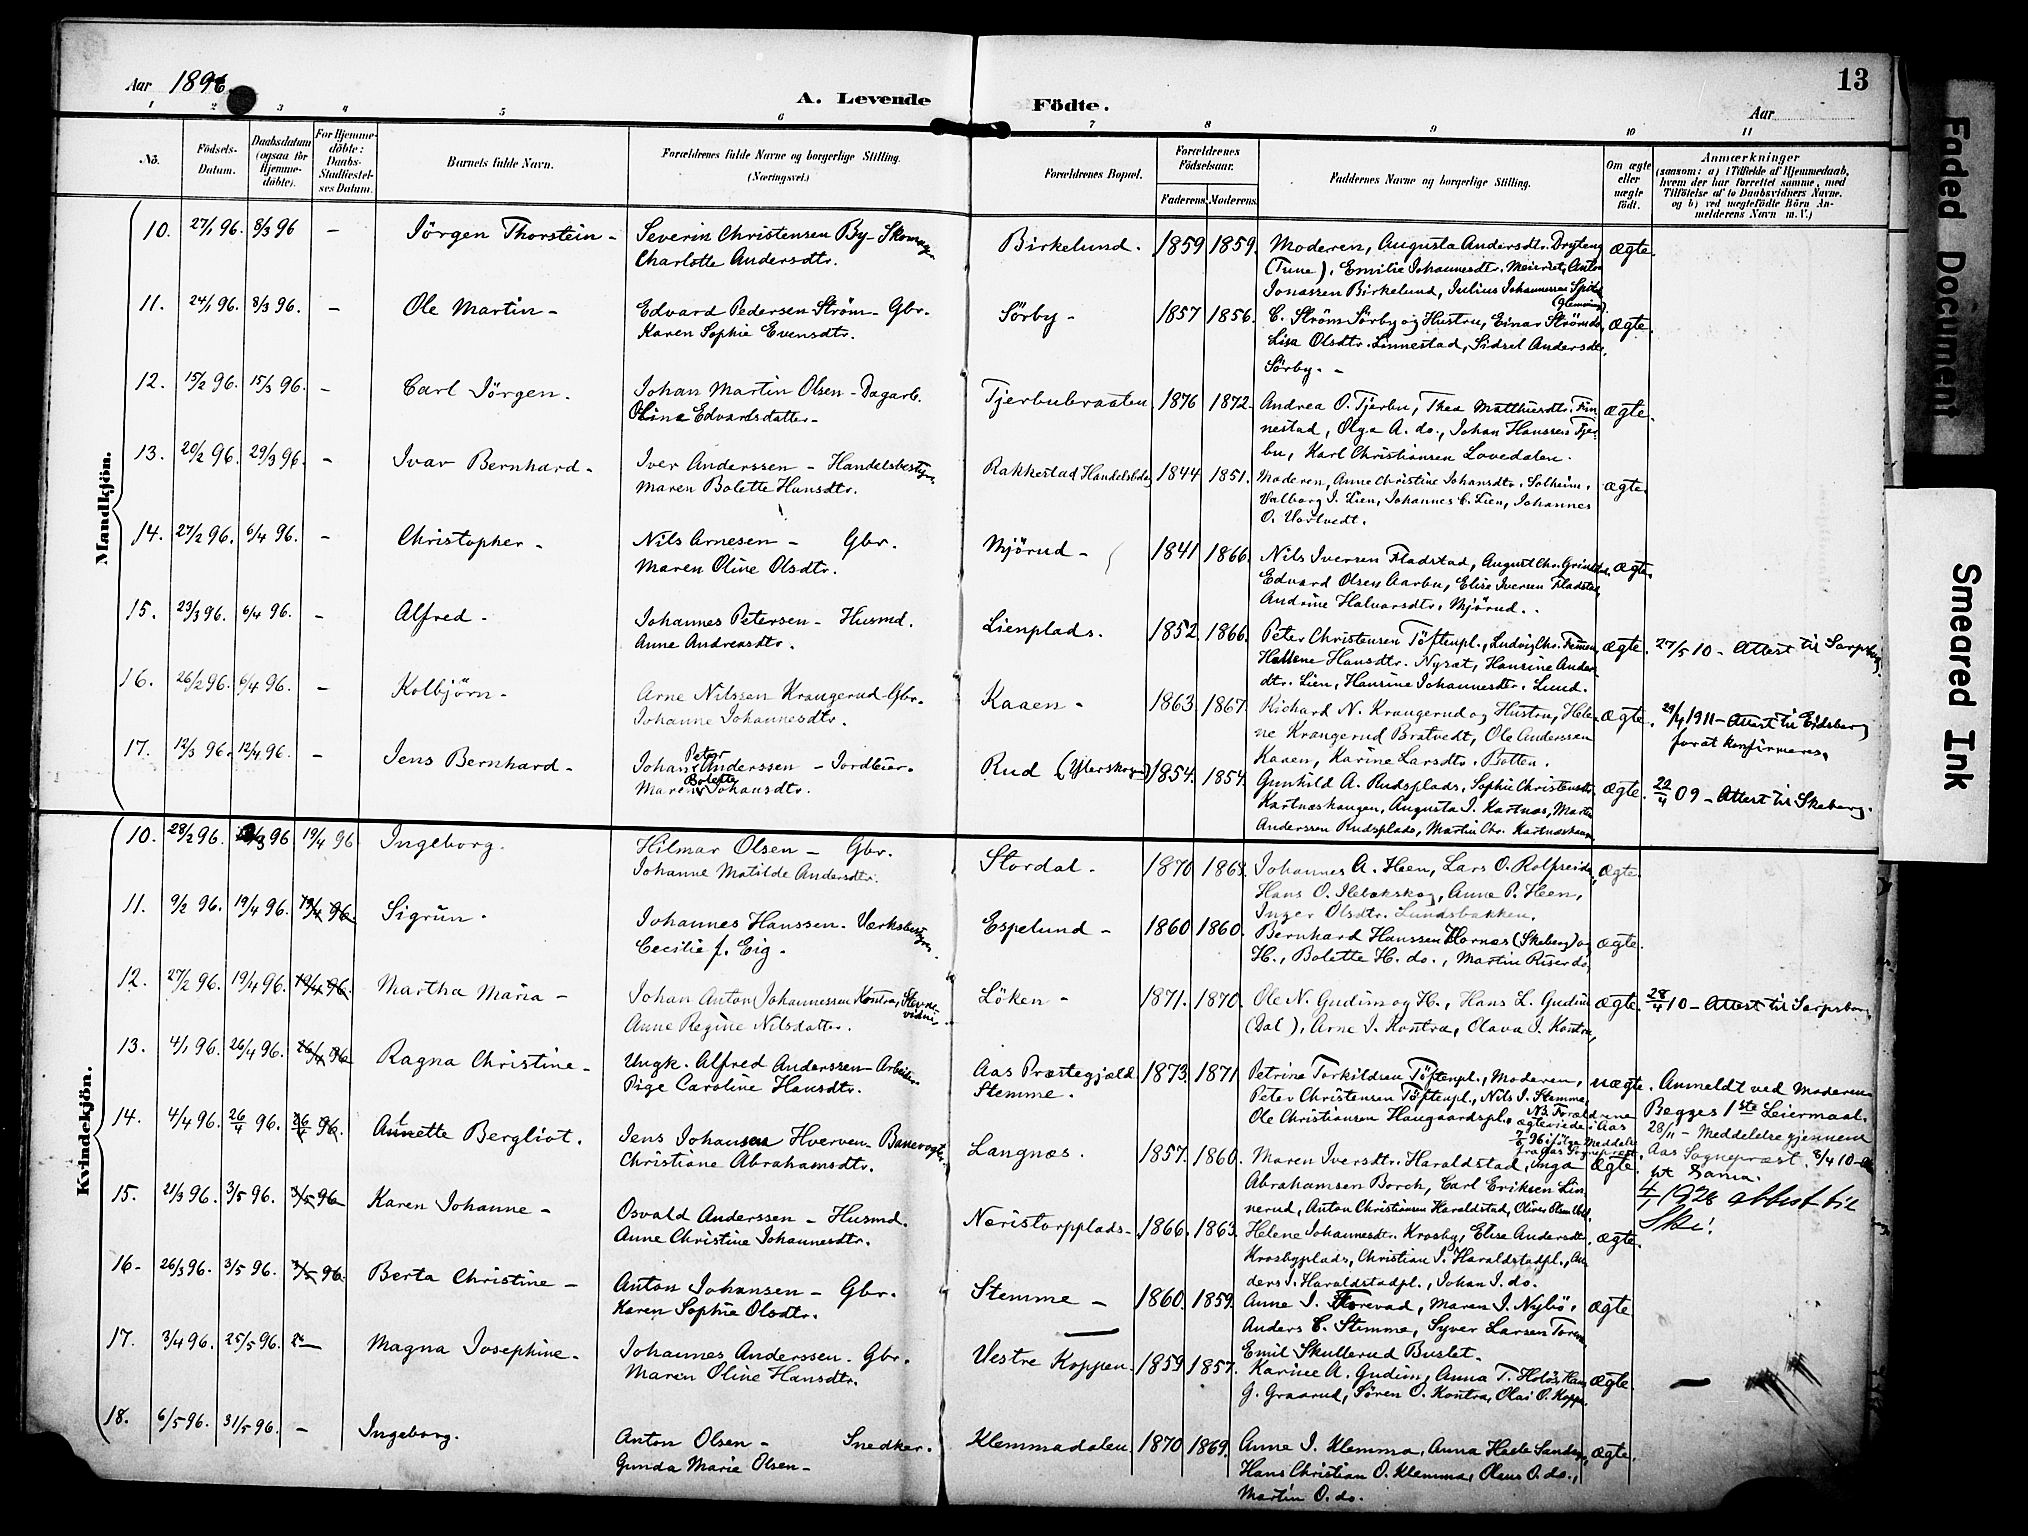 Aar 1896
A. Levende Födte.
13
Aar
1 2 3 4 5 6 7 8 9 10 11
No.
Födsels-Datum.
Daabsdatum (ogsaa för Hjemme-döbte).
For Hjemme-döbte: Daabs-Stadfæstel-ses Datum.
Barnets fulde Navn.
Forældrenes fulde Navne og borgerlige Stilling.
(Næringsvei.)
Forældrenes Bopæl.
Forældrenes Födselsaar.
Faderens. Moderens.
Faddernes Navne og borgerlige Stilling.
Om ægte eller uægte födt.
Anmærkninger
(saasom: a) i Tilfælde af Hjemmedaab,
hvem der har forrettet samme, med
Tilföielse af to Daabsvidners Navne.
og b) ved uægtefödte Börn An-
melderens Navn m. V.)
Mandkjön.
10. 27/1 96. 8/3 96 - Jörgen Thorstein - Severin Christensen By - Skomag. Birkelund. 1859 1859. Moderen, Augusta Andersdtr. ægte.
Charlotte Andersdtr. (Tune), Emilie Johannesdtr. Meieriet, Anton
Jonassen Birkelund, Julius Johannessen
11. 24/1 96. 8/3 96. - Ole Martin - Edvard Pedersen Ström - Gbr. Sörby - 1857 1856. C. Ström Sörby og Hustru, Einar Ström do, ægte.
Karen Sophie Evensdtr. Lisa Olsdtr. Linnestad, Sidsel Andersdtr.
Sörby. -
12. 15/2 96. 15/3 96. - Carl Jörgen. Johan Martin Olsen - Dagarb. Tjerbubraaten 1876 1872. Andrea O. Tjerbu, Thea Matthisdtr. Fin- ægte.
Oline Edvardsdatter - nestad, Olga A. do., Johan Hanssen Tjer-
bu, Karl Christiansen Lovedalen.
13. 20/2 96. 29/3 96. - Ivar Bernhard - Iver Anderssen - Handelsbestyr. Rakkestad Handelsbolag 1844 1851. Moderen, Anne Christine Johansdtr. Solheim, ægte.
Maren Bolette Hansdtr. Valborg J. Lien, Johannes C. Lien, Johannes
O. Vortvedt.
14. 27/2 96. 6/4 96. - Christopher - Nils Arnesen - Gbr. Mjörud - 1841 1866. Nils Iversen Fladstad, August Chr. ægte.
Maren Oline Olsdtr. Edvard Olsen Aarbu, Elise Iversen Fladstad,
Andrine Halvorsdtr. Mjörud.
15. 23/3 96. 6/4 96. - Alfred - Johannes Petersen - Husmd. Lienplads. 1852. 1866. Peter Christensen Töftenpl., Ludvig Chr. ægte. 27/5 10 - Attest til Sarpsborg.
Anne Andreasdtr. Hansdtr. Nysæt, Hansine Ander-
dtr. Lien, Hansine Johannesdtr. Lund.
16. 26/2 96. 6/4 96. - Kolbjörn - Arne Nilssen Krangerud - Gbr. Kaaen - 1863 1867. Richard N. Krangerud og Hustru, Hele- ægte. 1911 - Attest til Eidsberg
Johanne Johannesdtr. ne Krangerud Bratvedt, Ole Anderssen for at konfirmeres.
Kaaen, Karine Larsdtr. Botten.
17. 12/3 96. 12/4 96. - Jens Bernhard - Johan Peter Anderssen - Jordbrug. Rud (Ytterskogen) 1854. 1854. Gunhild A. Rudsplads, Sophie Christensdtr. ægte. 20/4 09 - Attest til Skeberg.
Maren Bolette Johansdtr. Kartnæshaugen, Augusta J. Kartnæs, Martin
Anderssen Rudsplads, Martin Chr. Kartnæshaugen
Kvindekjön.
10. 28/2 96. 96 19/4 96 Ingeborg. Hilmar Olsen - Gbr. Stordal - 1870 1869. Johannes A. Heen, Lars O. Rolfseide, ægte.
Johanne Matilde Andersdtr. Hans O. Ilebækskog, Anne P. Heen,
Inger Olsdtr. Lundsbakken.
11. 9/2 96. 19/4 96. 19/4 96. Sigrün. Johannes Hanssen - Værksbestyrer. Espelund - 1860 1860. Bernhard Hanssen Hornæs (Skeberg) og ægte.
Cecilie f. Eig - H., Bolette H. do., Martin Riser do,
12. 27/2 96. 19/4 96. 19/4 96. Martha Maria - Johan Anton Johannessen Kontra, Stevne-vidne. Löken - 1871. 1870. Ole N. Gudim og H., Hans L. Gudim ægte. 28/4 10 - Attest til Sarpsborg.
Anne Regine Nilsdatter. (Dal), Arne J. Kontra, Olava J. Kontra,
13. 4/1 96. 26/4 96. 26/4 96 Ragna Christine - Ungk. Alfred Anderssen - Arbeider. Aas Præstegjæld 1873. 1871 Petrine Torkildsen Töftenpl., Moderen, uægte. Anmeldt ved Moderen
Pige Caroline Hansdtr. Stemme. Peter Christensen Töftenpl., Nils J. Stemme, Begges 1ste Leiermaal.
Ole Christiansen Haugaardspl. NB. Forældrene ægteviede i Aas 23/11 - Meddelelse gjennem
7/6 96 ifölge Meddelelse fra Aas Sognepræst. Aas Sognepræst. 8/4 10 -
14. 4/4 96. 26/4 96. 26/4 96. Annette Bergliot. Jens Johansen Hverven - Banevogter. Langnæs. 1857. 1860. Maren Iversdtr. Haraldstad, Inga ægte.
Christiane Abrahamsdtr. Abrahamsen Borch, Carl Eriksen Lin- 4/1 1928 attest til
nerud, Anton Christiansen Haraldstad, Ski!
15. 21/3 96. 3/5 96. 3/5 96 Karen Johanne - Osvald Anderssen - Husmd. Næristorpplads - 1866. 1863. Helene Johannesdtr. Krosby, Elise Andersdtr. ægte.
Anne Christine Johannesdtr. Krosbyplads, Christian J. Haraldstadpl., An-
ders J. Haraldstadpl., Johan J. do.
16 - 26/3 96. 3/5 96. 3/5 96. Berta Christine - Anton Johansen - Gbr. Stemme - 1860. 1859. Anne J. , Maren J. Nybö, ægte
Karen Sophie Olsdtr. Anders C. Stemme, Syver Larsen
Emil Skullerud Buslet.
17. 3/4 96. 25/5 96. - Magna Josephine - Johannes Anderssen - Gbr. Vestre Koppen. 1859 1857. Karine A. Gudim, Anna T. ægte.
Maren Oline Hansdtr. G. Graarud, Sören O. Kontra, Olai O. Koppe.
18. 6/5 96. 31/5 96. - Ingeborg. Anton Olsen - Snedker. Klemmadalen 1870 1869. Anne J. Klemma, Anna Hasle ægte.
Gunda Marie Olsen - Hans Christian O. Klemma, Olaus O. do.,
Martin O. do.
Faded Document
Smeared Ink